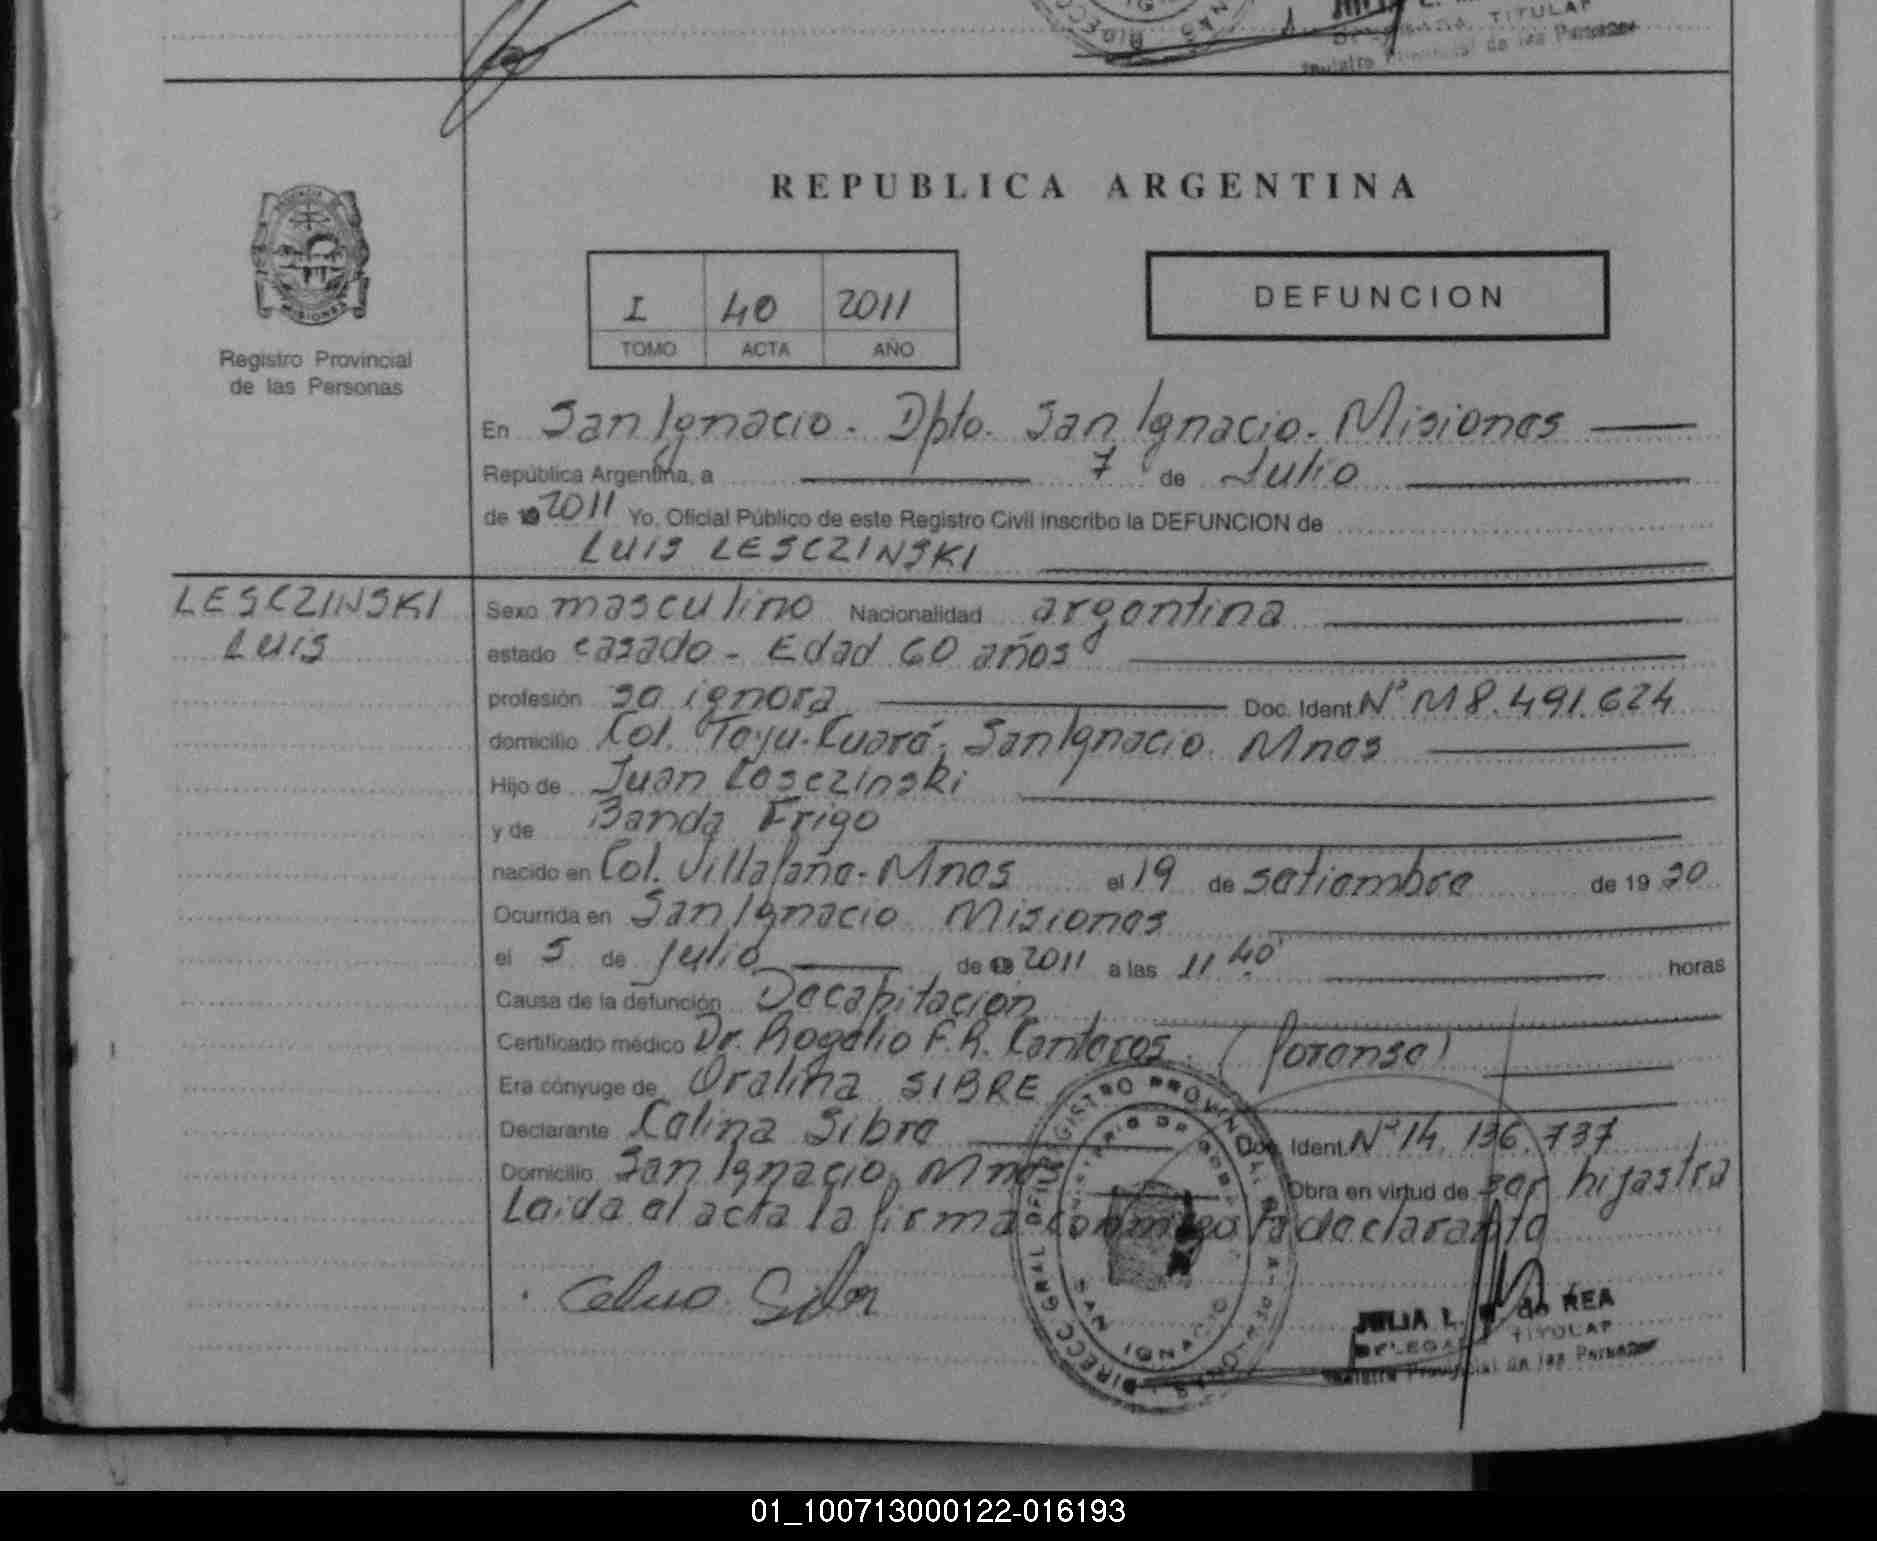 REPUBLICA ARGENTINA
MISIONES
Registro Provincial
de las Personas
I 40 2011
TOMO ACTA AÑO
DEFUNCION
En San Ignacio. Dpto. San Ignacio. Misiones
República Argentina, a 7 de Julio
de 2011 Yo, Oficial Público de este Registro Civil inscribo la DEFUNCION de
LUIS LESCZINSKI
LESCZINSKI
LUIS
Sexo masculino Nacionalidad argentina
estado casado - Edad 60 años
profesión se ignora Doc. Ident. Nº M 8.491.624
domicilio Col. Teyu-Cuaré, San Ignacio. Mnes
Hijo de Juan Lesczinski
y de Banda Frigo
nacido en Col. Villafañe - Mnes el 19 de setiembre de 19
Ocurrida en San Ignacio Misiones
el 5 de Julio de 2011 a las 11 40' horas
Causa de la defunción Decapitación
Certificado médico Dr. Rogelio F.R. Canteros (forense)
Era cónyuge de Oralina SIBRE
Declarante Sibre Doc. Ident. Nº 14.136.737
Domicilio San Ignacio, Mnes Obra en virtud de ser hijastra
Leida el acta la firma conmigo la declarante
JULIA L. de REA
DELEGADA TITULAR
Registro Provincial de las Personas
01_100713000122-016193